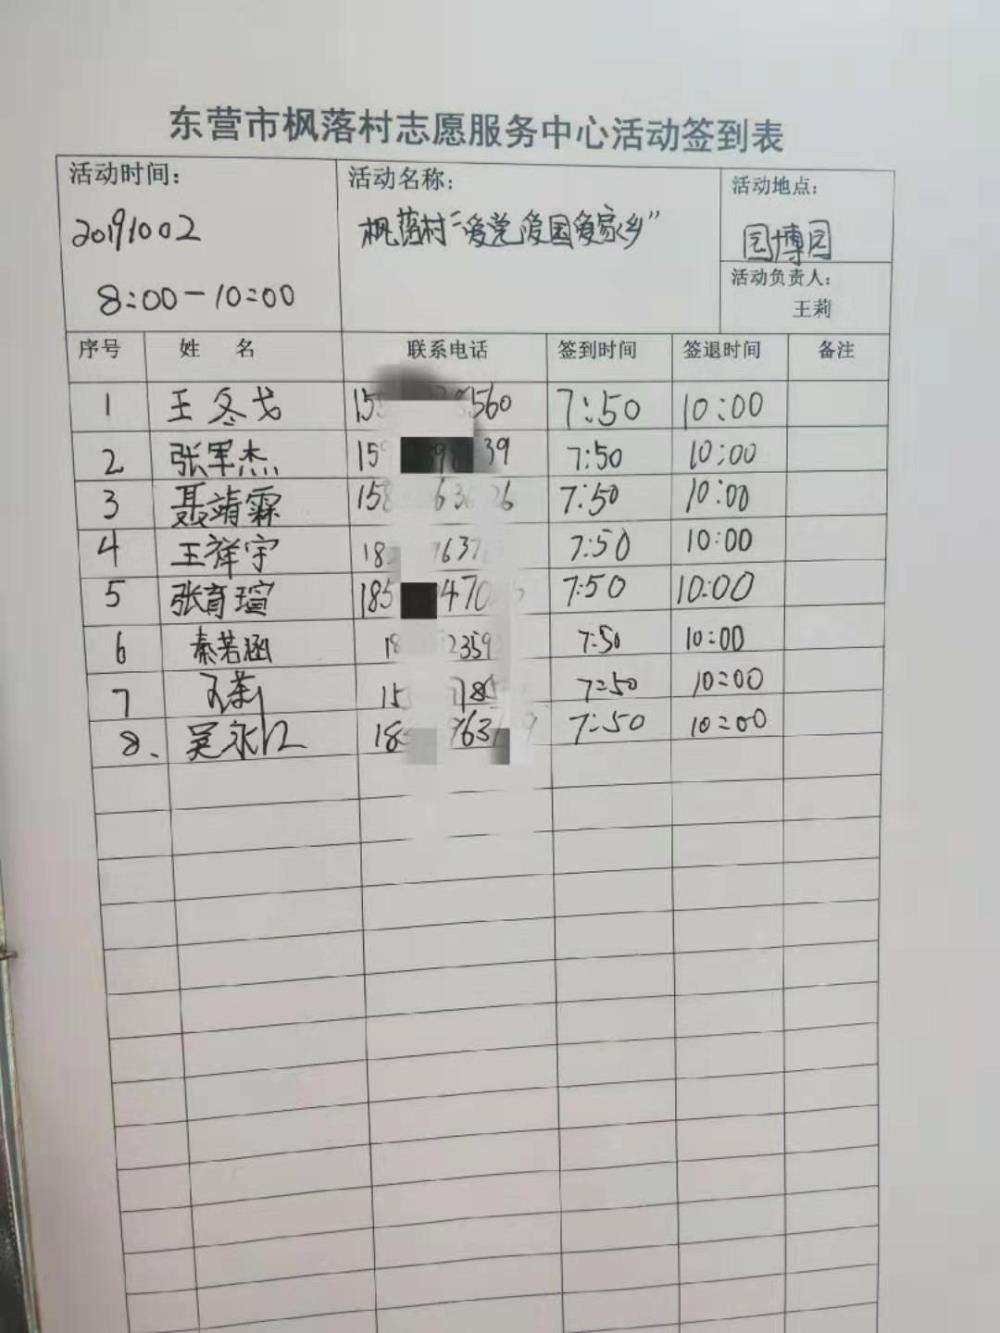 东营市枫落村志愿服务中心活动签到表
活动时间： 活动名称： 活动地点：
20191002 枫落村“爱党爱国爱家乡” 园博园
8:00-10:00 活动负责人：
王莉
序号 姓 名 联系电话 签到时间 签退时间 备注
1 王冬戈 15 560 7:50 10:00
2 张军杰 15 39 7:50 10:00
3 聂靖霖 158 63 26 7:50 10:00
4 王祥宇 18 637 7:50 10:00
5 张育瑄 185 470 7:50 10:00
6 秦若涵 18 2359 7:50 10:00
7 王莉 15 785 7:50 10:00
8、 吴永江 18 963 9 7:50 10:00